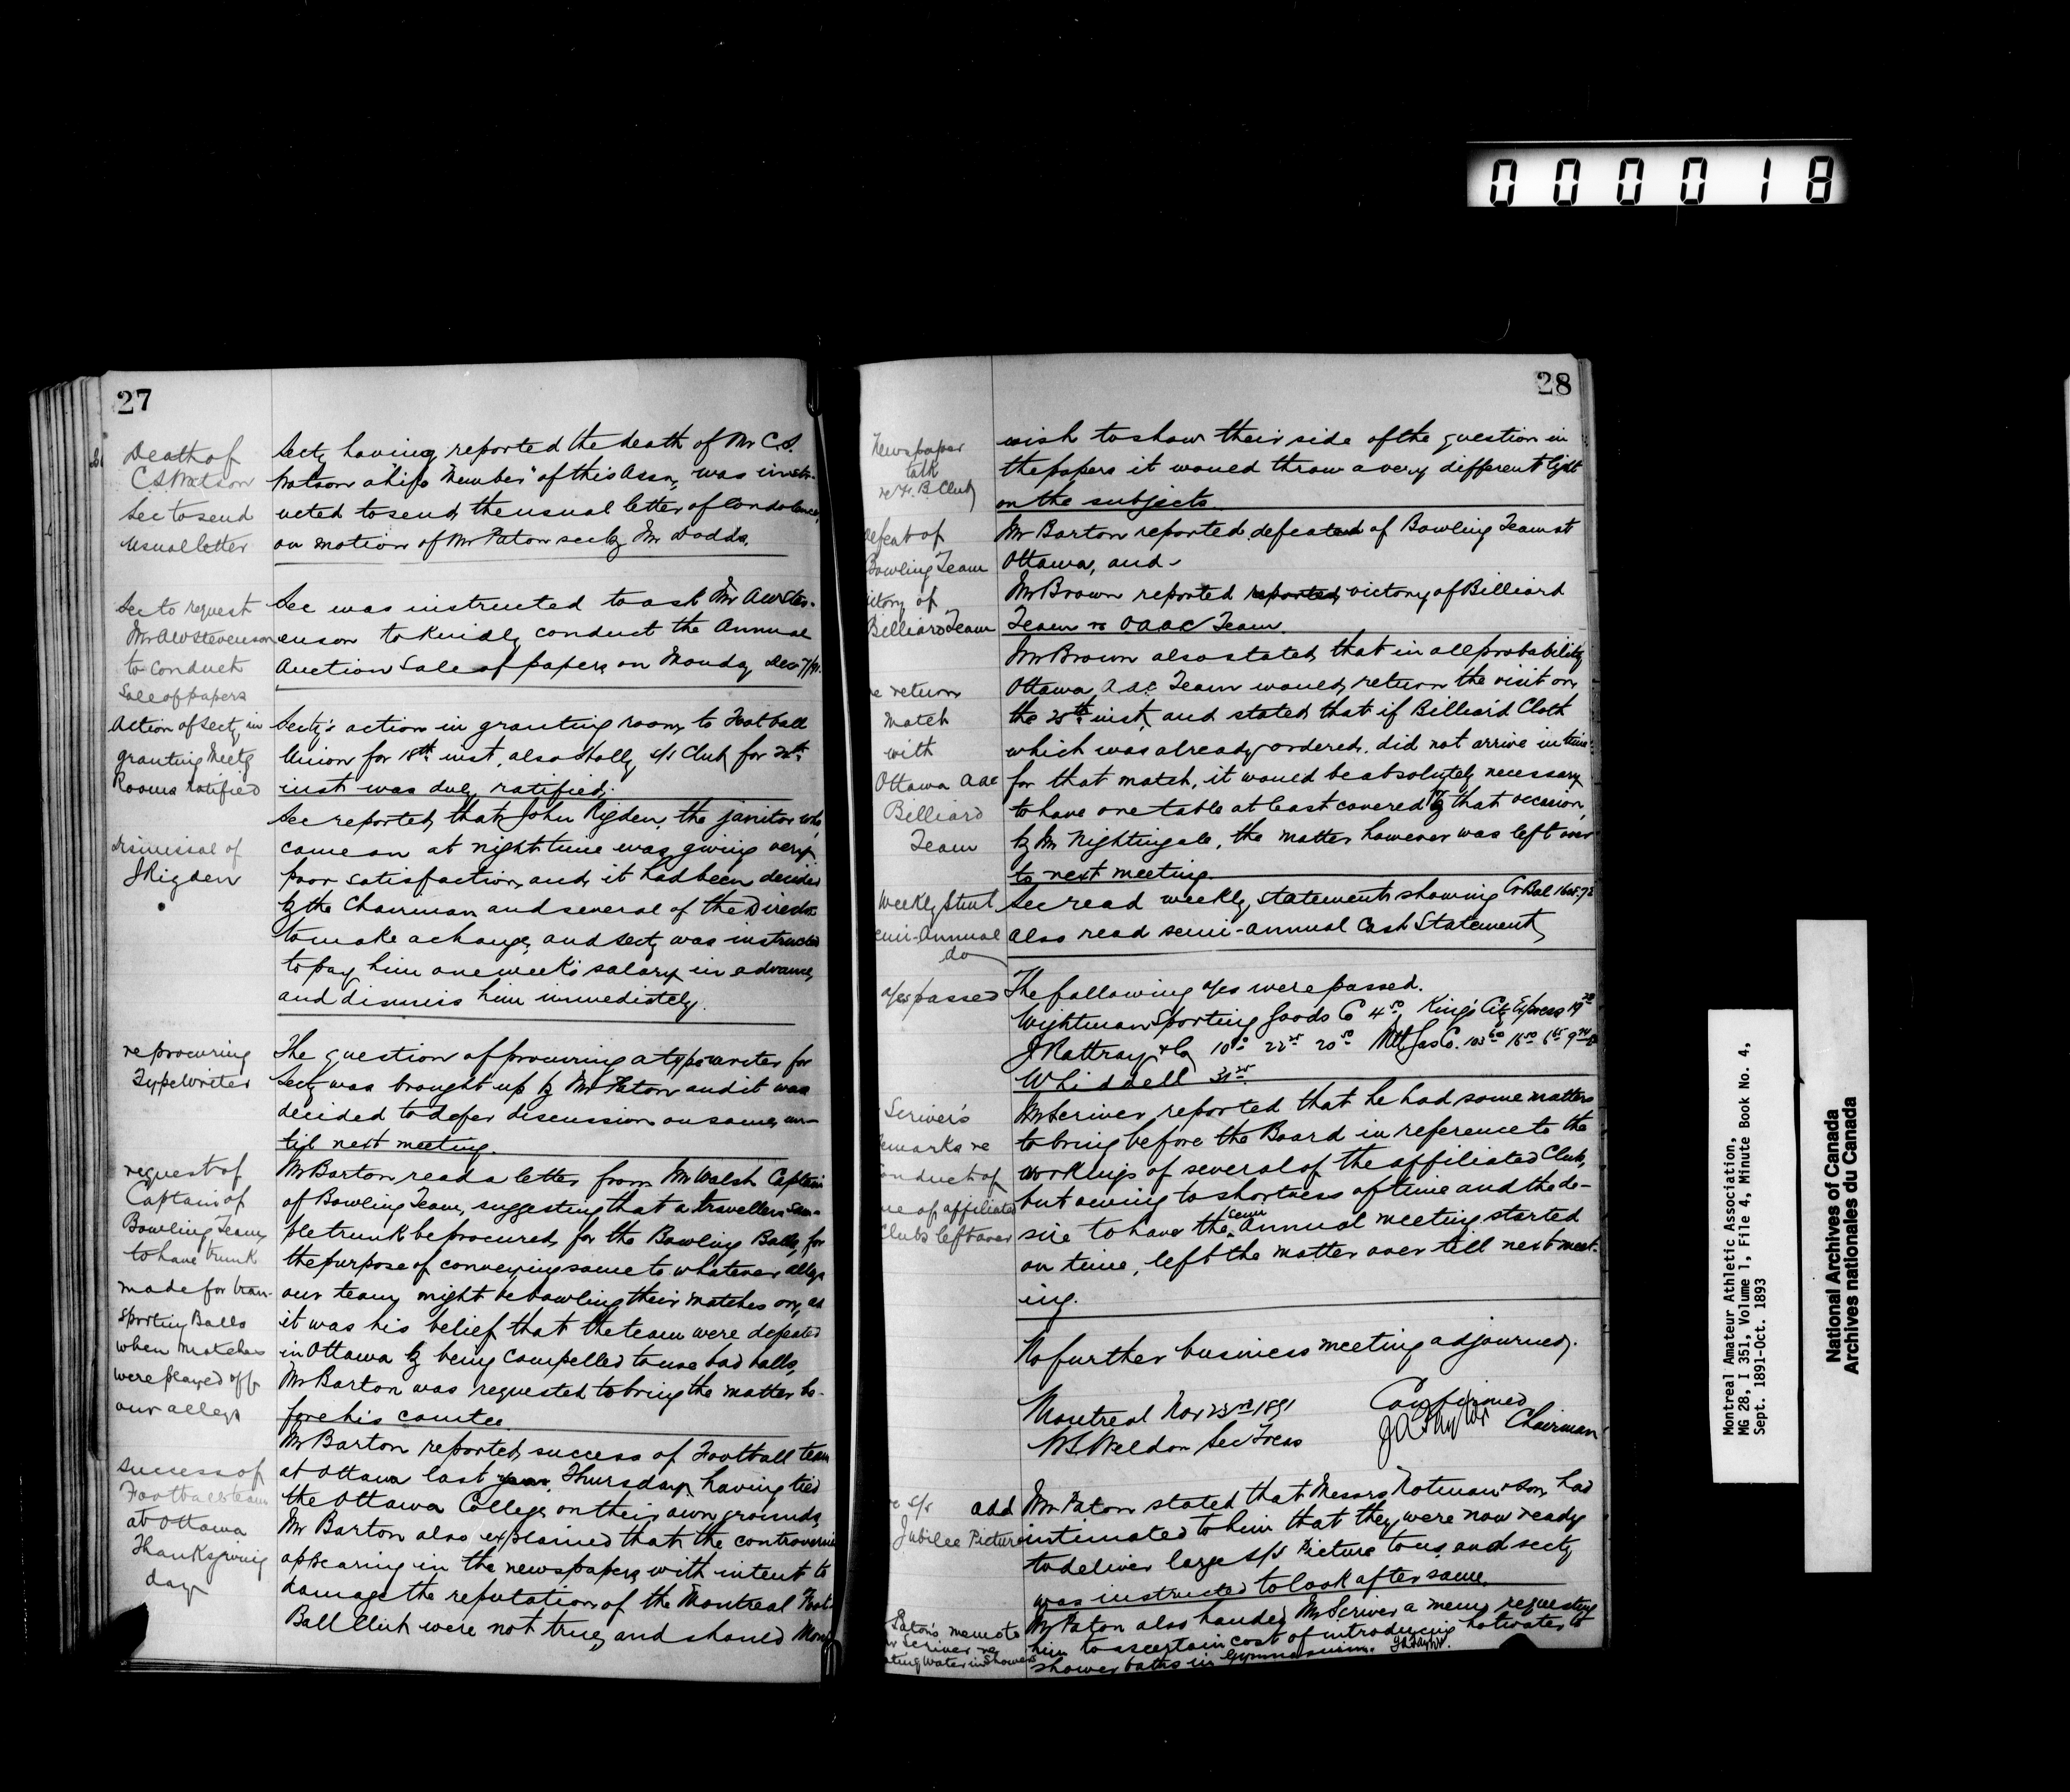 000018
27
Death of
C.S. Watson
Sec to send
usual letter
Secty having reported the death of Mr C.S.
Watson a "Life Member" of this Assn, was instr-
ucted to send the usual letter of Condolence,
on motion of Mr Paton sec by Mr Dodds.
Sec to request
Mr A W Stevenson
to conduct
Sale of papers
Sec was instructed to ask Mr A W Stev-
enson to kindly conduct the Annual
Auction Sale of papers on Monday Dec 7/91.
Action of Secty in
granting Meetg
Rooms ratified
Secty's action in granting room to Football
Union for 18th inst, also Holly S/S Club for
inst was duly ratified.
dismissal of
J Rigden
Sec reported that John Rigden, the janitor who
came on at night time was giving very
poor satisfaction, and it had been decided
by the Chairman and several of the Directors
to make a change, and Secty was instructed
to pay him one week's salary in advance,
and dismiss him immediately.
re procuring
Typewriter
The question of procuring a typewriter for
Secty was brought up by Mr Paton and it was
decided to defer discussion on same, un-
til next meeting.
request of
Captain of
Bowling Team,
to have trunk
made for tran-
sporting Balls
when matches
were played off
our alleys
Mr Barton read a letter from Mr Walsh Captain
of Bowling Team, suggesting that a travellers sam-
ple trunk be procured, for the Bowling Balls, for
the purpose of conveying same to whatever alleys
our team might be bowling their matches on, as
it was his belief that the team were defeated
in Ottawa by being compelled to use bad balls,
Mr Barton was requested to bring the matter be-
fore his comtee
success of
Football team
at Ottawa
Thanksgiving
day
Mr Barton reported success of Football team
at Ottawa last year, Thursday, having tied
the Ottawa College on their own grounds,
Mr Barton also explained that the controversies
appearing in the newspapers with intent to
damage the reputation of the Montreal Foot-
Ball Club were not true, and should Mont
28
Newspaper
talk
re F. B. Club
wish to show their side of the question in
the papers it would throw a very different light
on the subjects.
defeat of
Bowling Team
Mr Barton reported defeated of Bowling Team at
Ottawa, and -
victory of
Billiard Team
Mr Brown reported reported, victory of Billiard
Team vs OAAC Team.
re return
match
with
Ottawa AAC
Billiard
Team
Mr Brown also stated, that in all probability
Ottawa A.A.C. Team would, return the visit on
the 28th inst, and stated that if Billiard Cloth
which was already ordered, did not arrive in time
for that match, it would be absolutely necessary
to have one table at least covered by that occasion,
by Mr Nightingale, the matter however was left over
to next meeting.
Weekly Stmt
Semi-Annual
do
Sec read weekly statements showing Cr Bal
also read semi-annual Cash Statement,
a/cs passed
The following a/cs were passed.
Wightman Sporting Goods Co 4.50, King's City Express
J Rattray & Co 10 22 20 Mtl Gas Co.
Whiddell 31
Scriver's
remarks re
conduct of
one of affiliated
Clubs left over
Mr Scriver, reported that he had some matters
to bring before the Board in reference to the
workings of several of the affiliated Clubs,
but owing to shortness of time and the de-
sire to have the semi Annual meeting started
on time, left the matter over till next meet-
ing.
No further business meeting adjourned.
Montreal Nov 23rd 1891
W S Weldon Sec Treas
Confirmed
J A Taylor Chairman
re S/S
Jubilee Picture
add Mr Paton stated that Messrs Notman & Son, had
intimated to him that they were now ready
to deliver large S/S Picture to us, and secty
was instructed to look after same.
Paton's memo to
Mr Scriver re
heating water in Showers
Mr Paton also handed Mr Scriver a memo, requesting
him to ascertain cost of introducing hot water to
shower baths in Gymnasium. J A Taylor.
Montreal Amateur Athletic Association,
MG 28, I 351, Volume 1, File 4, Minute Book No. 4,
Sept. 1891-Oct. 1893
National Archives of Canada
Archives nationales du Canada